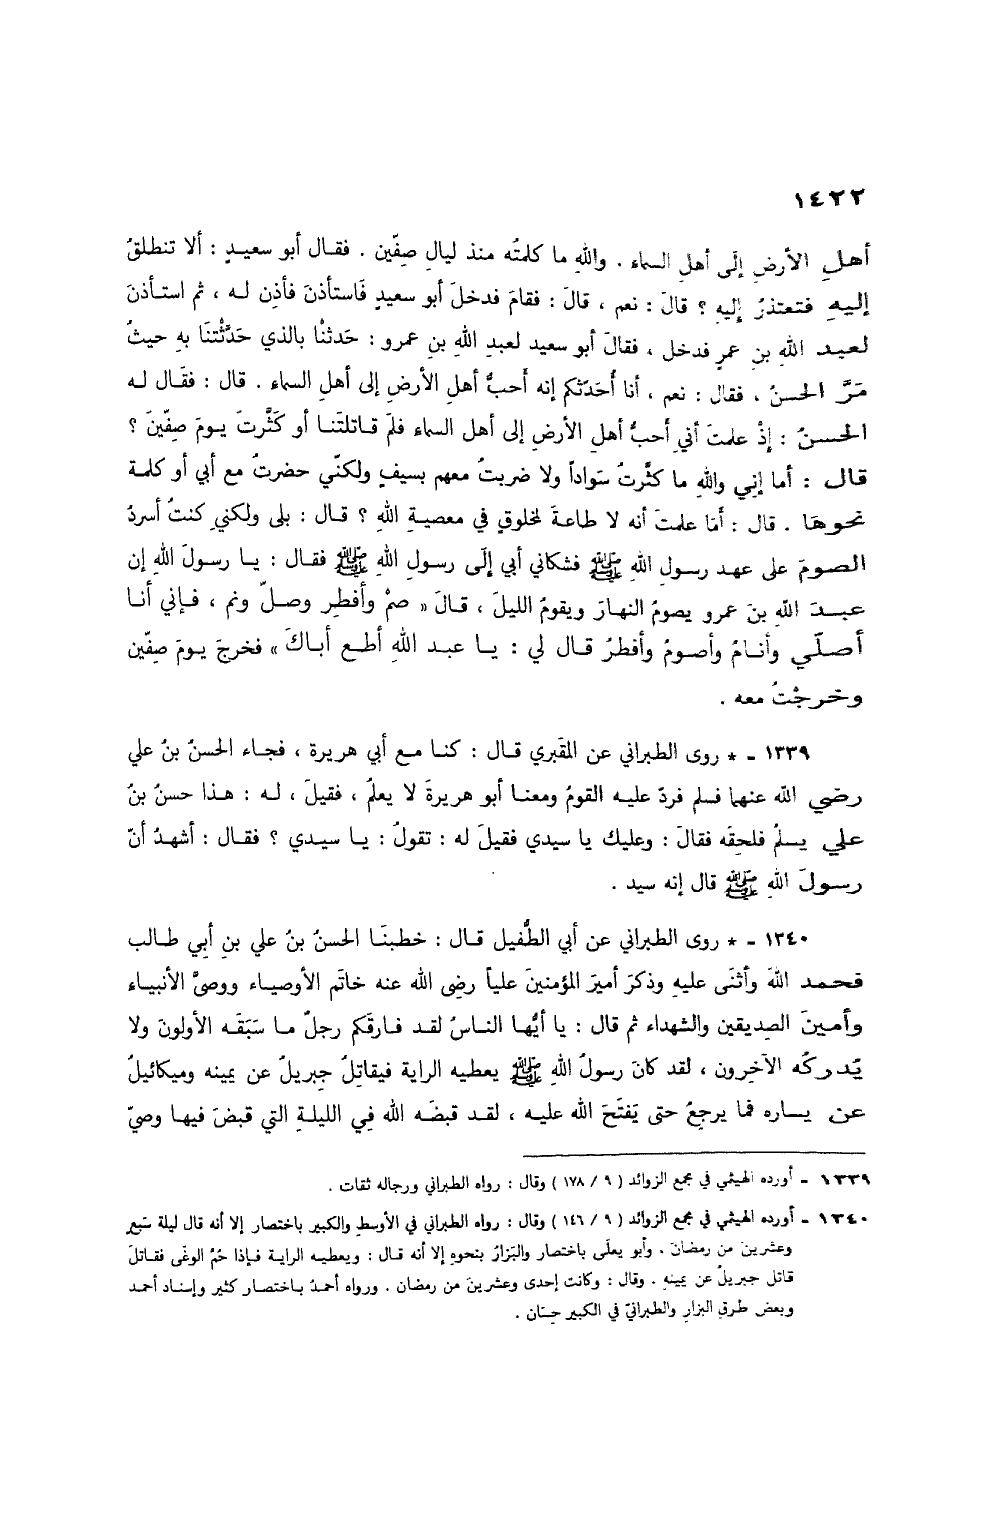 ١٤٢٢
أهلِ الأرضِ إلَى أهلِ السماء . واللهِ ما كلمتُه منذ ليالِ صِفّين . فقـال أبو سعيـدٍ : ألا تنطلقُ
إليـهِ فتعتذرُ إليهِ ؟ قالَ : نعم ، قالَ : فقامَ فدخلَ أبو سعيدٍ فَاستأذنَ فأذِن لـه ، ثم استـأذنَ
لعبـد اللهِ بنِ عمرٍ فدخل ، فقالَ أبو سعيد لعبدِ اللهِ بنِ عمرو : حَدثنْا بالذي حَدَّثْتنَا بِهِ حيثُ
مَرَّ الحسنُ ، فقال : نعم ، أنا أُحَدّثكم إنه أَحبُّ أهلِ الأرضِ إلى أهلِ السماء . قال : فقَـال لـه
الحسـنُ : إذْ علمتَ أنِي أَحبُّ أهلِ الأرضِ إلى أهل السماء فلمَ قـاتلتَنـا أو كَثَّرتَ يـومَ صِفّينَ ؟
قالـ : أما إنِي واللهِ ما كثَّرتُ سَواداً ولا ضربتُ معهم بسيفٍ ولكنّي حضرتُ مع أبي أو كلمة
نحوهَا . قال : أَمَا علمتَ أنه لا طاعةَ لمخلوقٍ في معصيةِ اللهِ ؟ قـال : بلى ولكنِي كنتُ أسردُ
الصـومَ على عهد رسـول اللهِ ﷺ فشكاني أبي إلَى رسولِ اللهِ ﷺ فقال : يـا رسولَ اللهِ إن
عبـدَ اللهِ بنَ عمرو يصومُ النهارَ ويقومُ الليلَ ، قـالَ « صمْ وأفطِر وصـلّ ونم ، فـإني أنـا
أُصلّي وأنـامُ وأصـومُ وأفطرُ قـال لي : يـا عبـد اللهِ أطـع أبـاكَ » فخرجَ يـومَ صِفّين
وخرجْتُ معه .
١٣٣٩ - * روى الطبراني عن المَقبري قـال : كنـا مـع أبي هريرة ، فجـاء الحسنُ بنُ علي
رضي الله عنهما فسلم فردّ عليـه القومُ ومعنـا أبو هريرةَ لا يعلمُ ، فقيلَ ، له : هـذا حسنُ بنُ
علي يسلمُ فلحِقَه فقالَ : وعليك يا سيدي فقيلَ له : تقولُ : يـا سيـدي ؟ فقـال : أشهدُ أنّ
رسـولَ اللهِ ﷺ قال إنه سيد .
١٣٤٠ - * روى الطبراني عن أبي الطُّفيل قـال : خطبنَـا الحسنُ بنُ علي بنِ أبِي طـالب
فحمـد اللهَ وأثنَى عليهِ وذكرَ أميرَ المؤمنينَ علياً رضي الله عنه خاتَم الأوصيـاء ووصيَّ الأنبيـاء
وأمـينَ الصديقين والشهداء ثم قال : يا أيُّهـا النـاسُ لقـد فـارقَكم رجلٌ مـا سَبَقَـه الأولونَ ولا
يُدركُه الآخِرون ، لقد كانَ رسولُ اللهِ ﷺ يعطيه الراية فيقاتلُ جبريلُ عن يمينه وميكائيلُ
عن يساره فما يرجعُ حتى يَفتَحَ الله عليـه ، لقـد قبضَـه الله فِي الليلـةِ التي قبضَ فيهـا وصيّ
١٣٣٩ - أورده الهيثمي في مجمع الزوائد ( ٩ / ١٧٨ ) وقال : رواه الطبراني ورجاله ثقات .
١٣٤٠ - أورده الهيثمي في مجمع الزوائد ( ٩ / ١٤٦ ) وقال : رواه الطبراني في الأوسطِ والكبير باختصار إلا أنه قال ليلة سَبعٍ
وعشرينَ من رمضانَ ، وأبو يعلَى باختصار والبَزارُ بنحوهِ إلا أنه قـال : ويعطيـه الرايـة فـإذا حُمّ الوغَى فقـاتلَ
قاتل جبريلُ عن يمينهِ . وقال : وكانت إحدى وعشرينَ من رمضان . ورواه أحمدُ بـاختصـار كثير وإسنـاد أحمـد
وبعض طرقِ البزارِ والطبرانيّ في الكبير حِسَان .